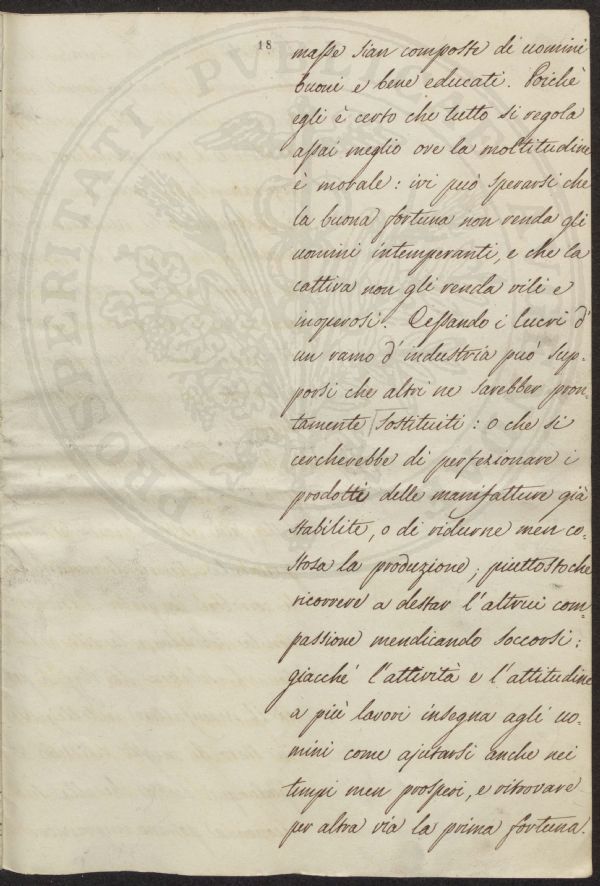 18
masse sian composte di uomini
buoni e bene educati. Poichè
egli è certo che tutto si regola
assai meglio ove la moltitudine
è morale: ivi può sperarsi che
la buona fortuna non renda gli
uomini intemperanti, e che la
cattiva non gli renda vili e
inoperosi. Cessando i lucri d'
un ramo d'industria può sup=
porsi che altri ne sarebber pron=
tamente sostituiti: o che si
cercherebbe di perfezionare i
prodotti delle manifatture già
stabilite, o di ridurne men co=
stosa la produzione; piuttostochè
ricorrere a destar l'altrui com=
passione mendicando soccorsi:
giacché l'attività e l'attitudine
a più lavori insegna agli uo=
mini come ajutarsi anche nei
tempi men prosperi, e ritrovare
per altra via la prima fortuna.
PROSPERITATI PUB